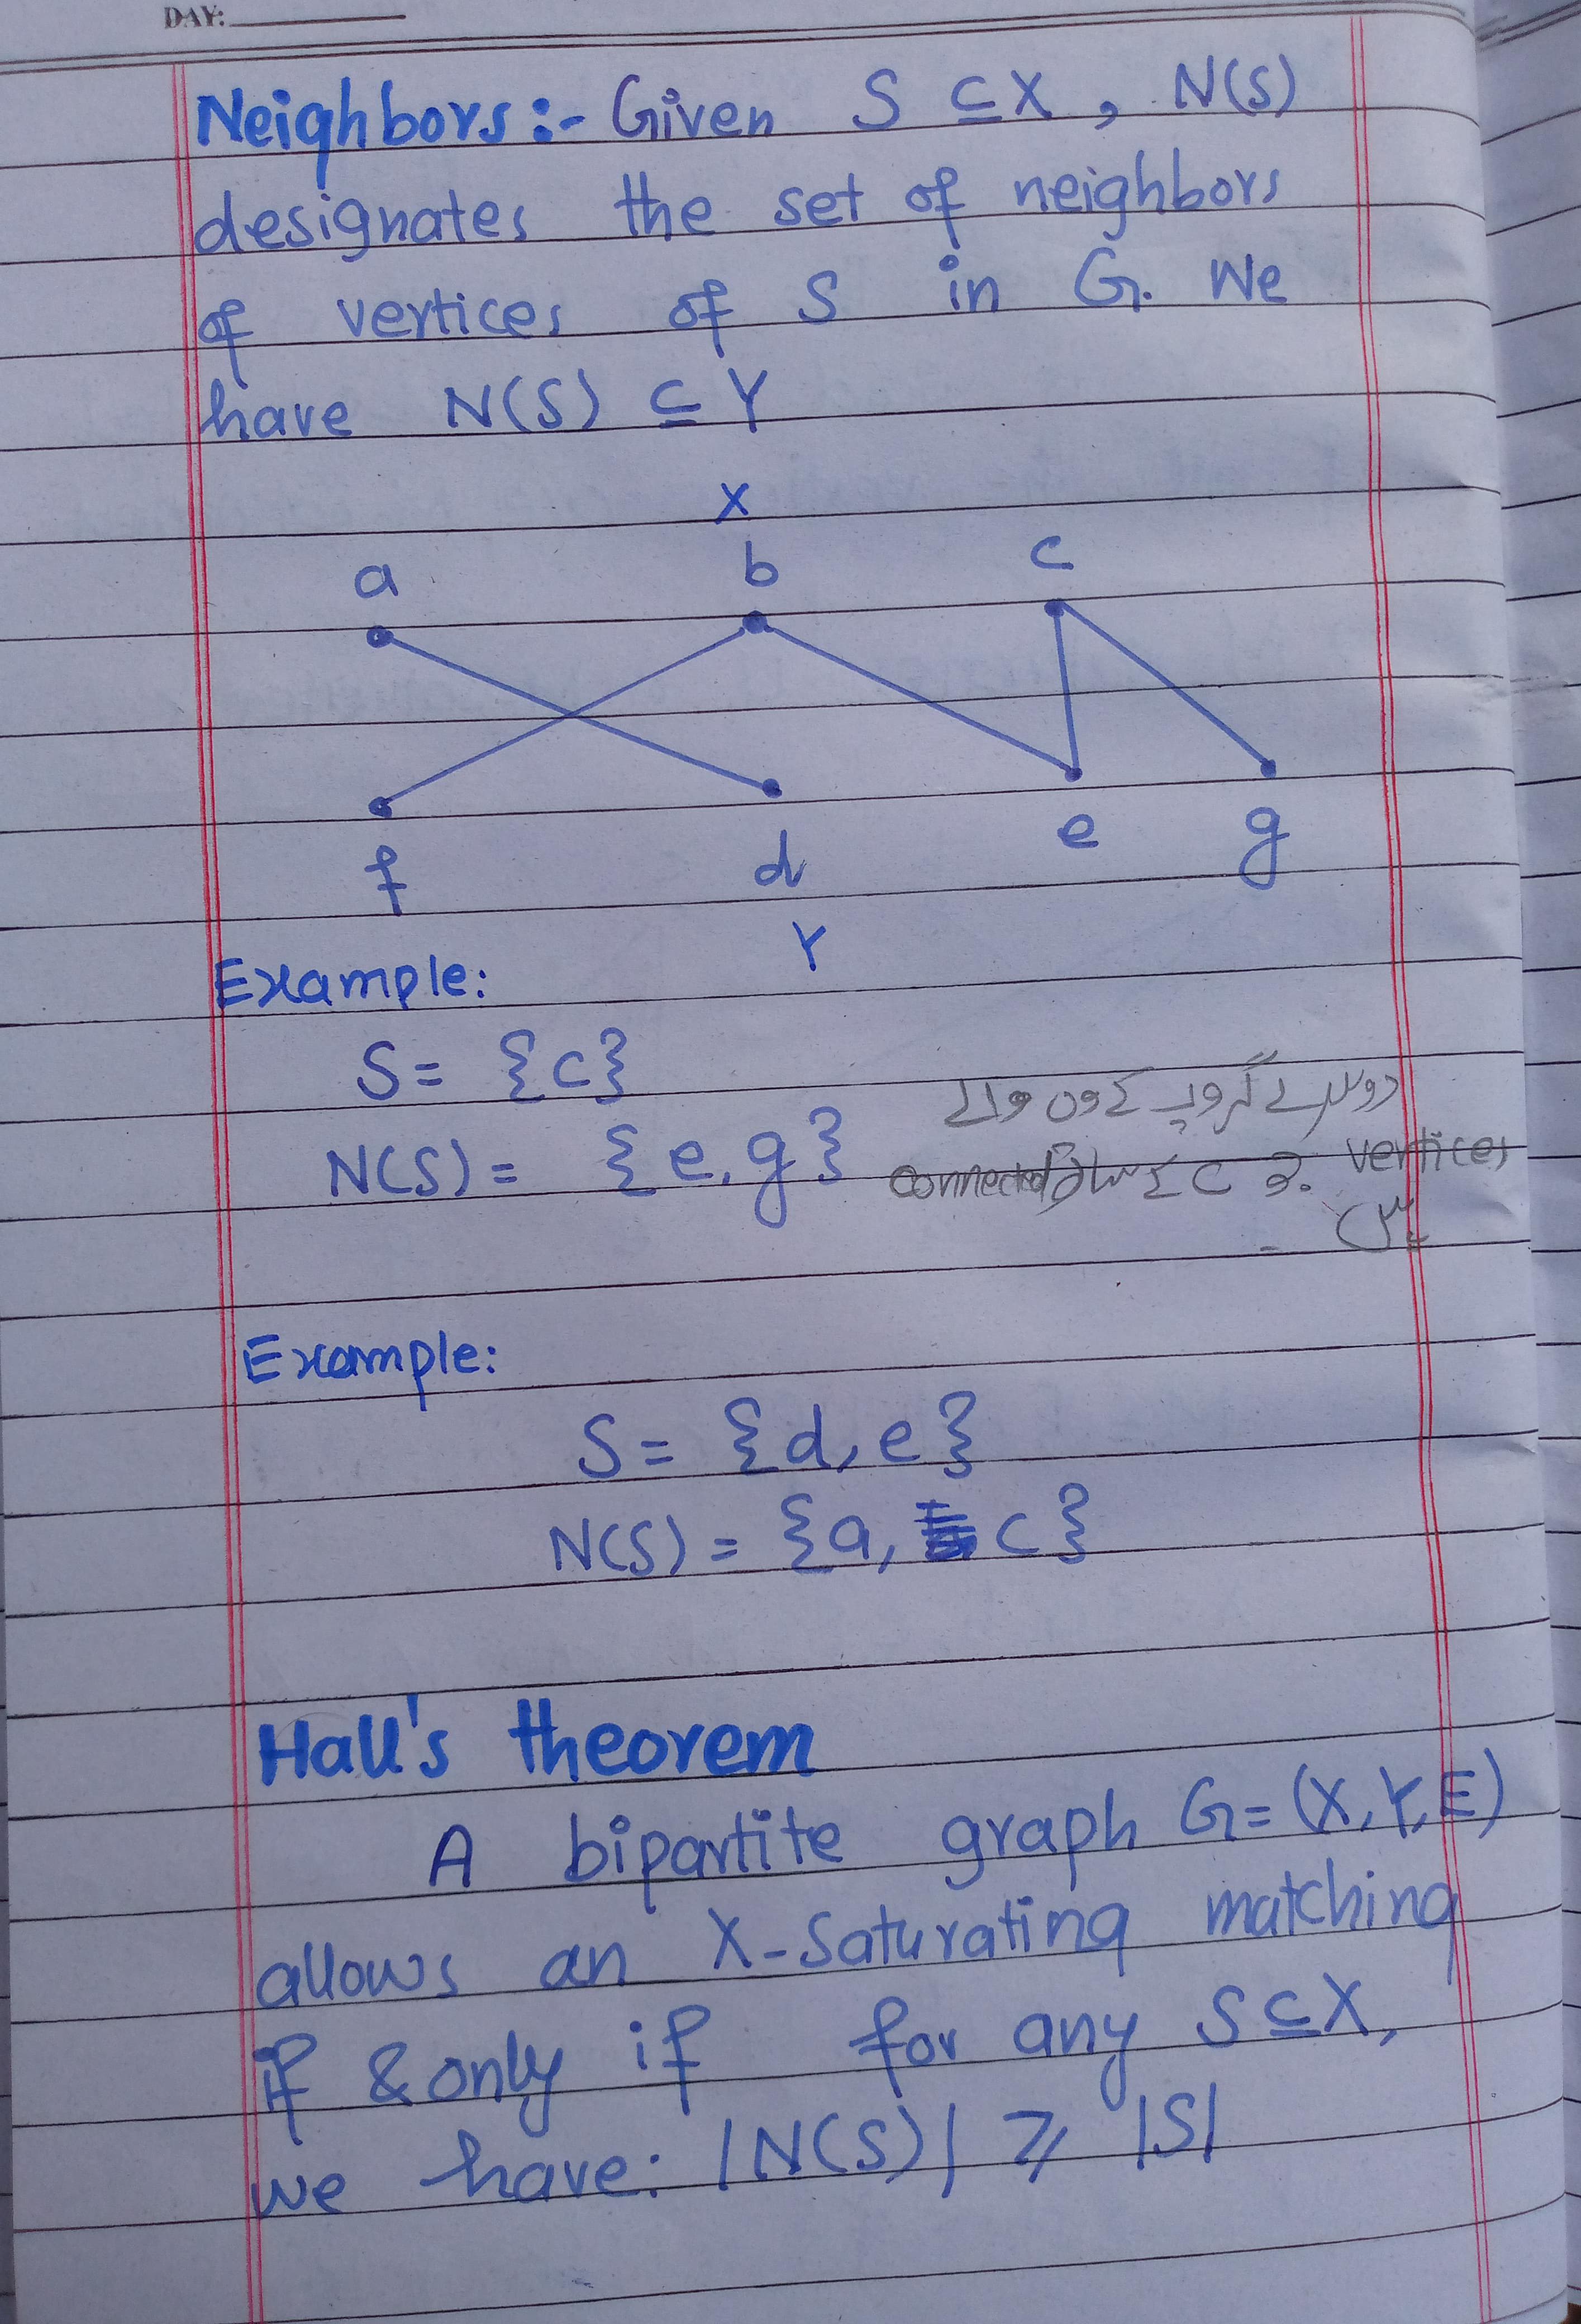 DAY:
Neighbors:- Given S ⊆ X, N(S)
designates the set of neighbors
of vertices of S in G. We
have N(S) ⊆ Y
X
a b c
f d e g
Y
Example:
S = {c}
دوسرے گروپ کے وں والے
N(S) = {e, g}
vertices جو c کے ساتھ connected
ہیں۔
Example:
S = {d, e}
N(S) = {a, c}
Hall's theorem
A bipartite graph G = (X, Y, E)
allows an X-Saturating matching
if & only if for any S ⊆ X,
we have: |N(S)| ⩾ |S|